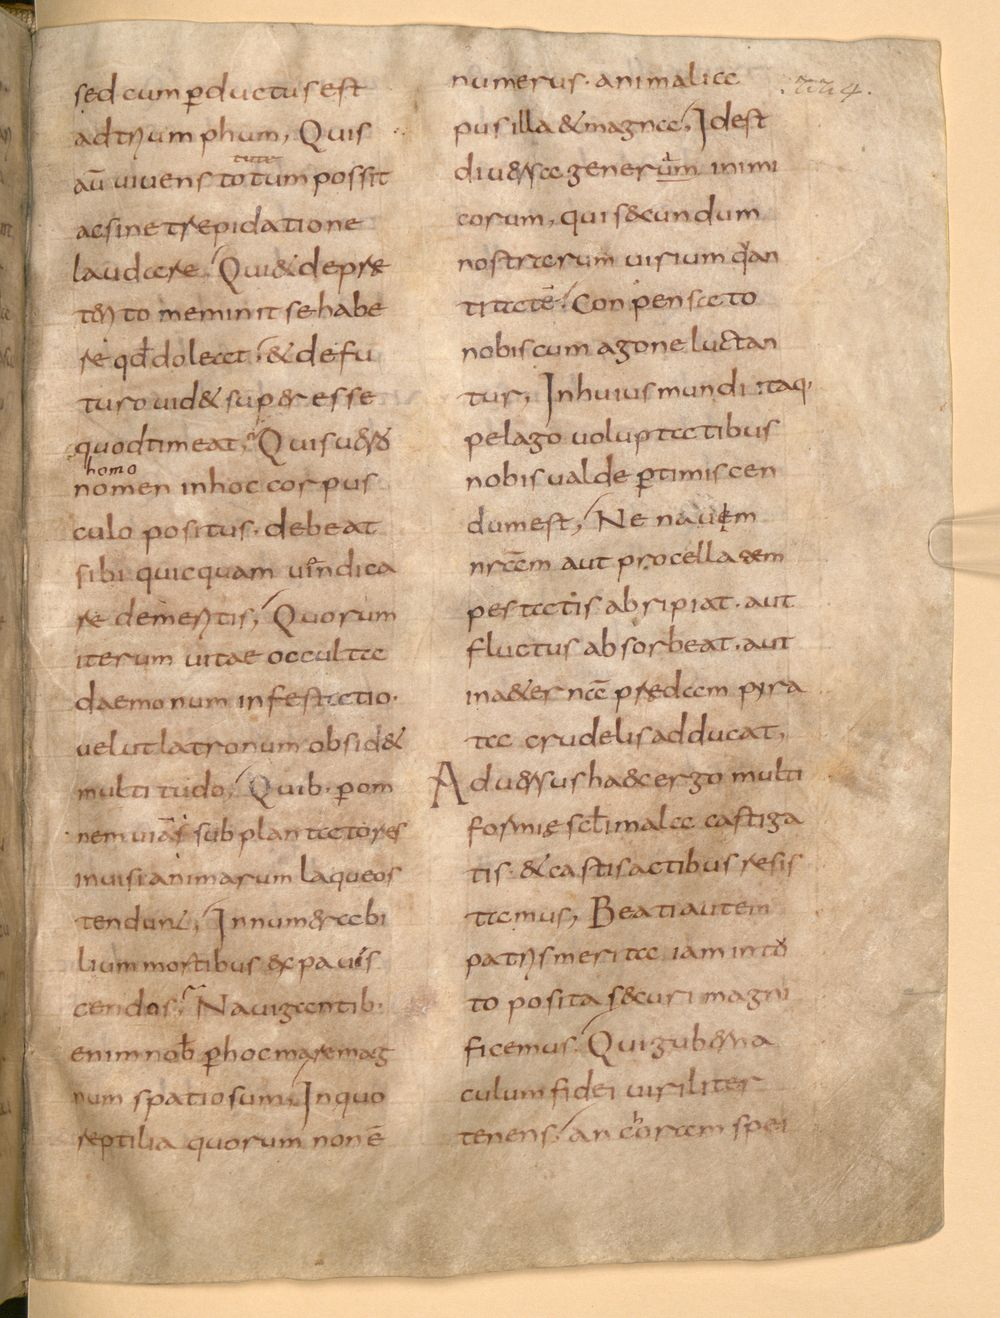 sed cum ꝑductus est
ad trium phum, Quis
tute
aū uiuens totum possit
ac sine trepidatione
laudare, Qui & de prae
terito meminit se habe
re qđ doleat, & de fu
turo uid& super esse
quod timeat, Quis uero
homo
nomen in hoc corpus
culo positus· debeat
sibi quicquam uindica
re dementis, Quorum
iterum uitae occulta
daemonum infestatio·
uelut latronum obsid&
multitudo, Quib· ꝑ om
nem uiā sub planta tores
inuisi animarum laqueos
tendunt, Innumerabi
lium mortibus & pauis
cendos, Nauigantib·
enim nob̄ ꝑ hoc mare mag
num spatiosum, In quo
reptilia quorum non ē
numerus· animalia
pusilla & magna, Id est
diuersa generum inimi
corum, qui s&cundum
nostrarum uirium qan
titatē, Conpensato
nobiscum agone luctan
tur, In huius mundi itaq·
pelago uoluptatibus
nobis ualde ꝑtimiscen
dum est, Ne nauem
nrām aut procella tem
pestatis abripiat· aut
fluctus absorbeat· aut
in a&ernā praedam pira
ta crudelis adducat,
Aduersus haec ergo multi
formis scłi mala castiga
tis· & castis actibus resis
tamus, Beati autem
patris merita iam in tu
to posita s&curi magni
ficemus· Qui guberna
culum fidei uiriliter
tenens, anchoram spei